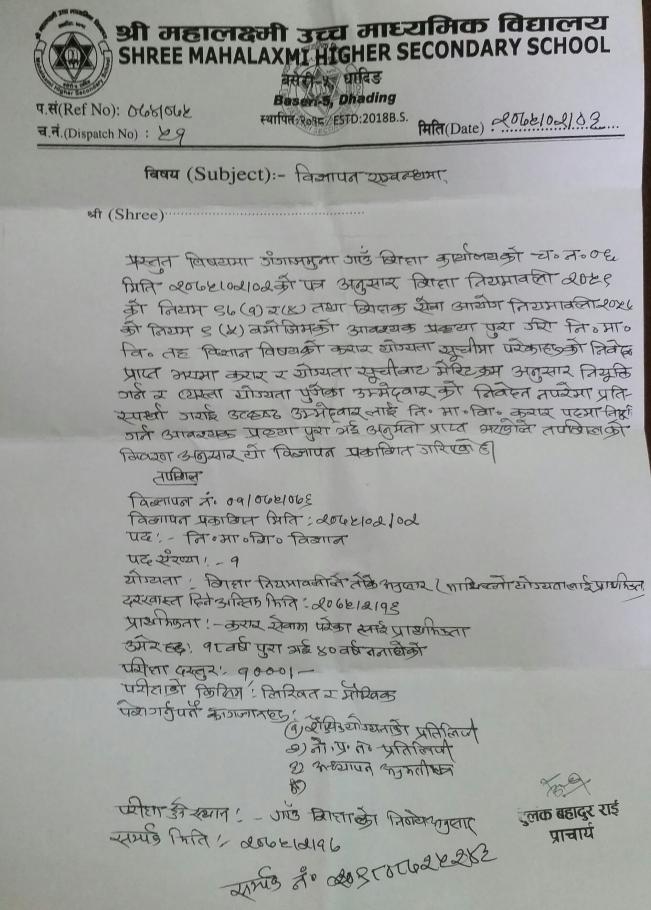 श्री महालक्ष्मी उच्च माध्यमिक विद्यालय
SHREE MAHALAXMI HIGHER SECONDARY SCHOOL
बसेरी-५, धादिङ
Baseri-5, Dhading
स्थापितः२०१८/ESTD:2018B.S.
प.सं(Ref No): ०७४/०७५
च.नं.(Dispatch No) : ५१
मिति(Date) : २०७५/०२/०३
विषय (Subject):- विज्ञापन सम्बन्धमा,
श्री (Shree)
प्रस्तुत विषयमा गंगाजमुना गाउँ शिक्षा कार्यालयको च. न. ०६
मिति २०७५/०२/०२को पत्र अनुसार शिक्षा नियमावली २०५९
को नियम ९६(१) र(४) तथा शिक्षक सेवा आयोग नियमावली२०५७
को नियम ९ (५) बमोजिमको आवश्यक प्रक्रया पुरा गरि नि॰ मा॰
वि॰ तह विज्ञान विषयको करार योग्यता सूचीमा परेकाहरुको निवेदन
प्राप्त भएमा करार र योग्यता सूचीबाट मेरिटक्रम अनुसार नियुक्ति
गर्न र त्यस्ता योग्यता पुगेका उम्मेदवार को निवेदन नपरेमा प्रति-
स्पर्धा गराई उत्कृष्ठ उम्मेदवार लाई नि॰ मा॰ वि॰ करार पदमा
गर्न आवश्यक प्रक्रया पुरा गर्न अनुमती प्राप्त भएकोले तपशिलको
विवरण अनुसार यो विज्ञापन प्रकाशित गरिएको छ।
तपशिल
विज्ञापन नं. ०१/०७५/०७६
विज्ञापन प्रकाशित मिति : २०७५/०२/०२
पद :- नि॰मा॰वि॰ विज्ञान
पद संख्या :- १
योग्यता : शिक्षा नियमावलीले तोके अनुसार (माथिल्लो योग्यतालाई प्राथमिकता
दरखास्त दिने अन्तिम मिति : २०७५/२/१६
प्राथमिकता :- करार सेवामा परेका लाई प्राथमिकता
उमेर हद : १८ वर्ष पुरा भई ४० वर्ष ननाघेको
परीक्षा दस्तुर :- १०००।-
परीक्षाको किसिम : लिखित र मौखिक
पेश गर्नुपर्ने कागजातहरु :
(१) शैक्षिक योग्यताको प्रतिलिपी
२) ना॰ प्र॰ न॰ प्रतिलिपी
३) अध्यापन अनुमतीपत्र
४)
परीक्षा हुने स्थान :- गाउँ शिक्षाको निर्णय अनुसार
सम्पर्क मिति :- २०७५/२/१७
सम्पर्क नं॰
बहादुर राई
प्राचार्य